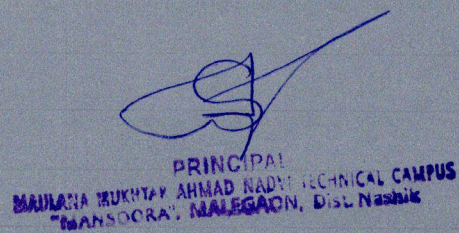 PRINCIPAL
MAULANA MUKHTAR AHMAD NADVI TECHNICAL CAMPUS
"MANSOORA", MALEGAON, Dist. Nashik